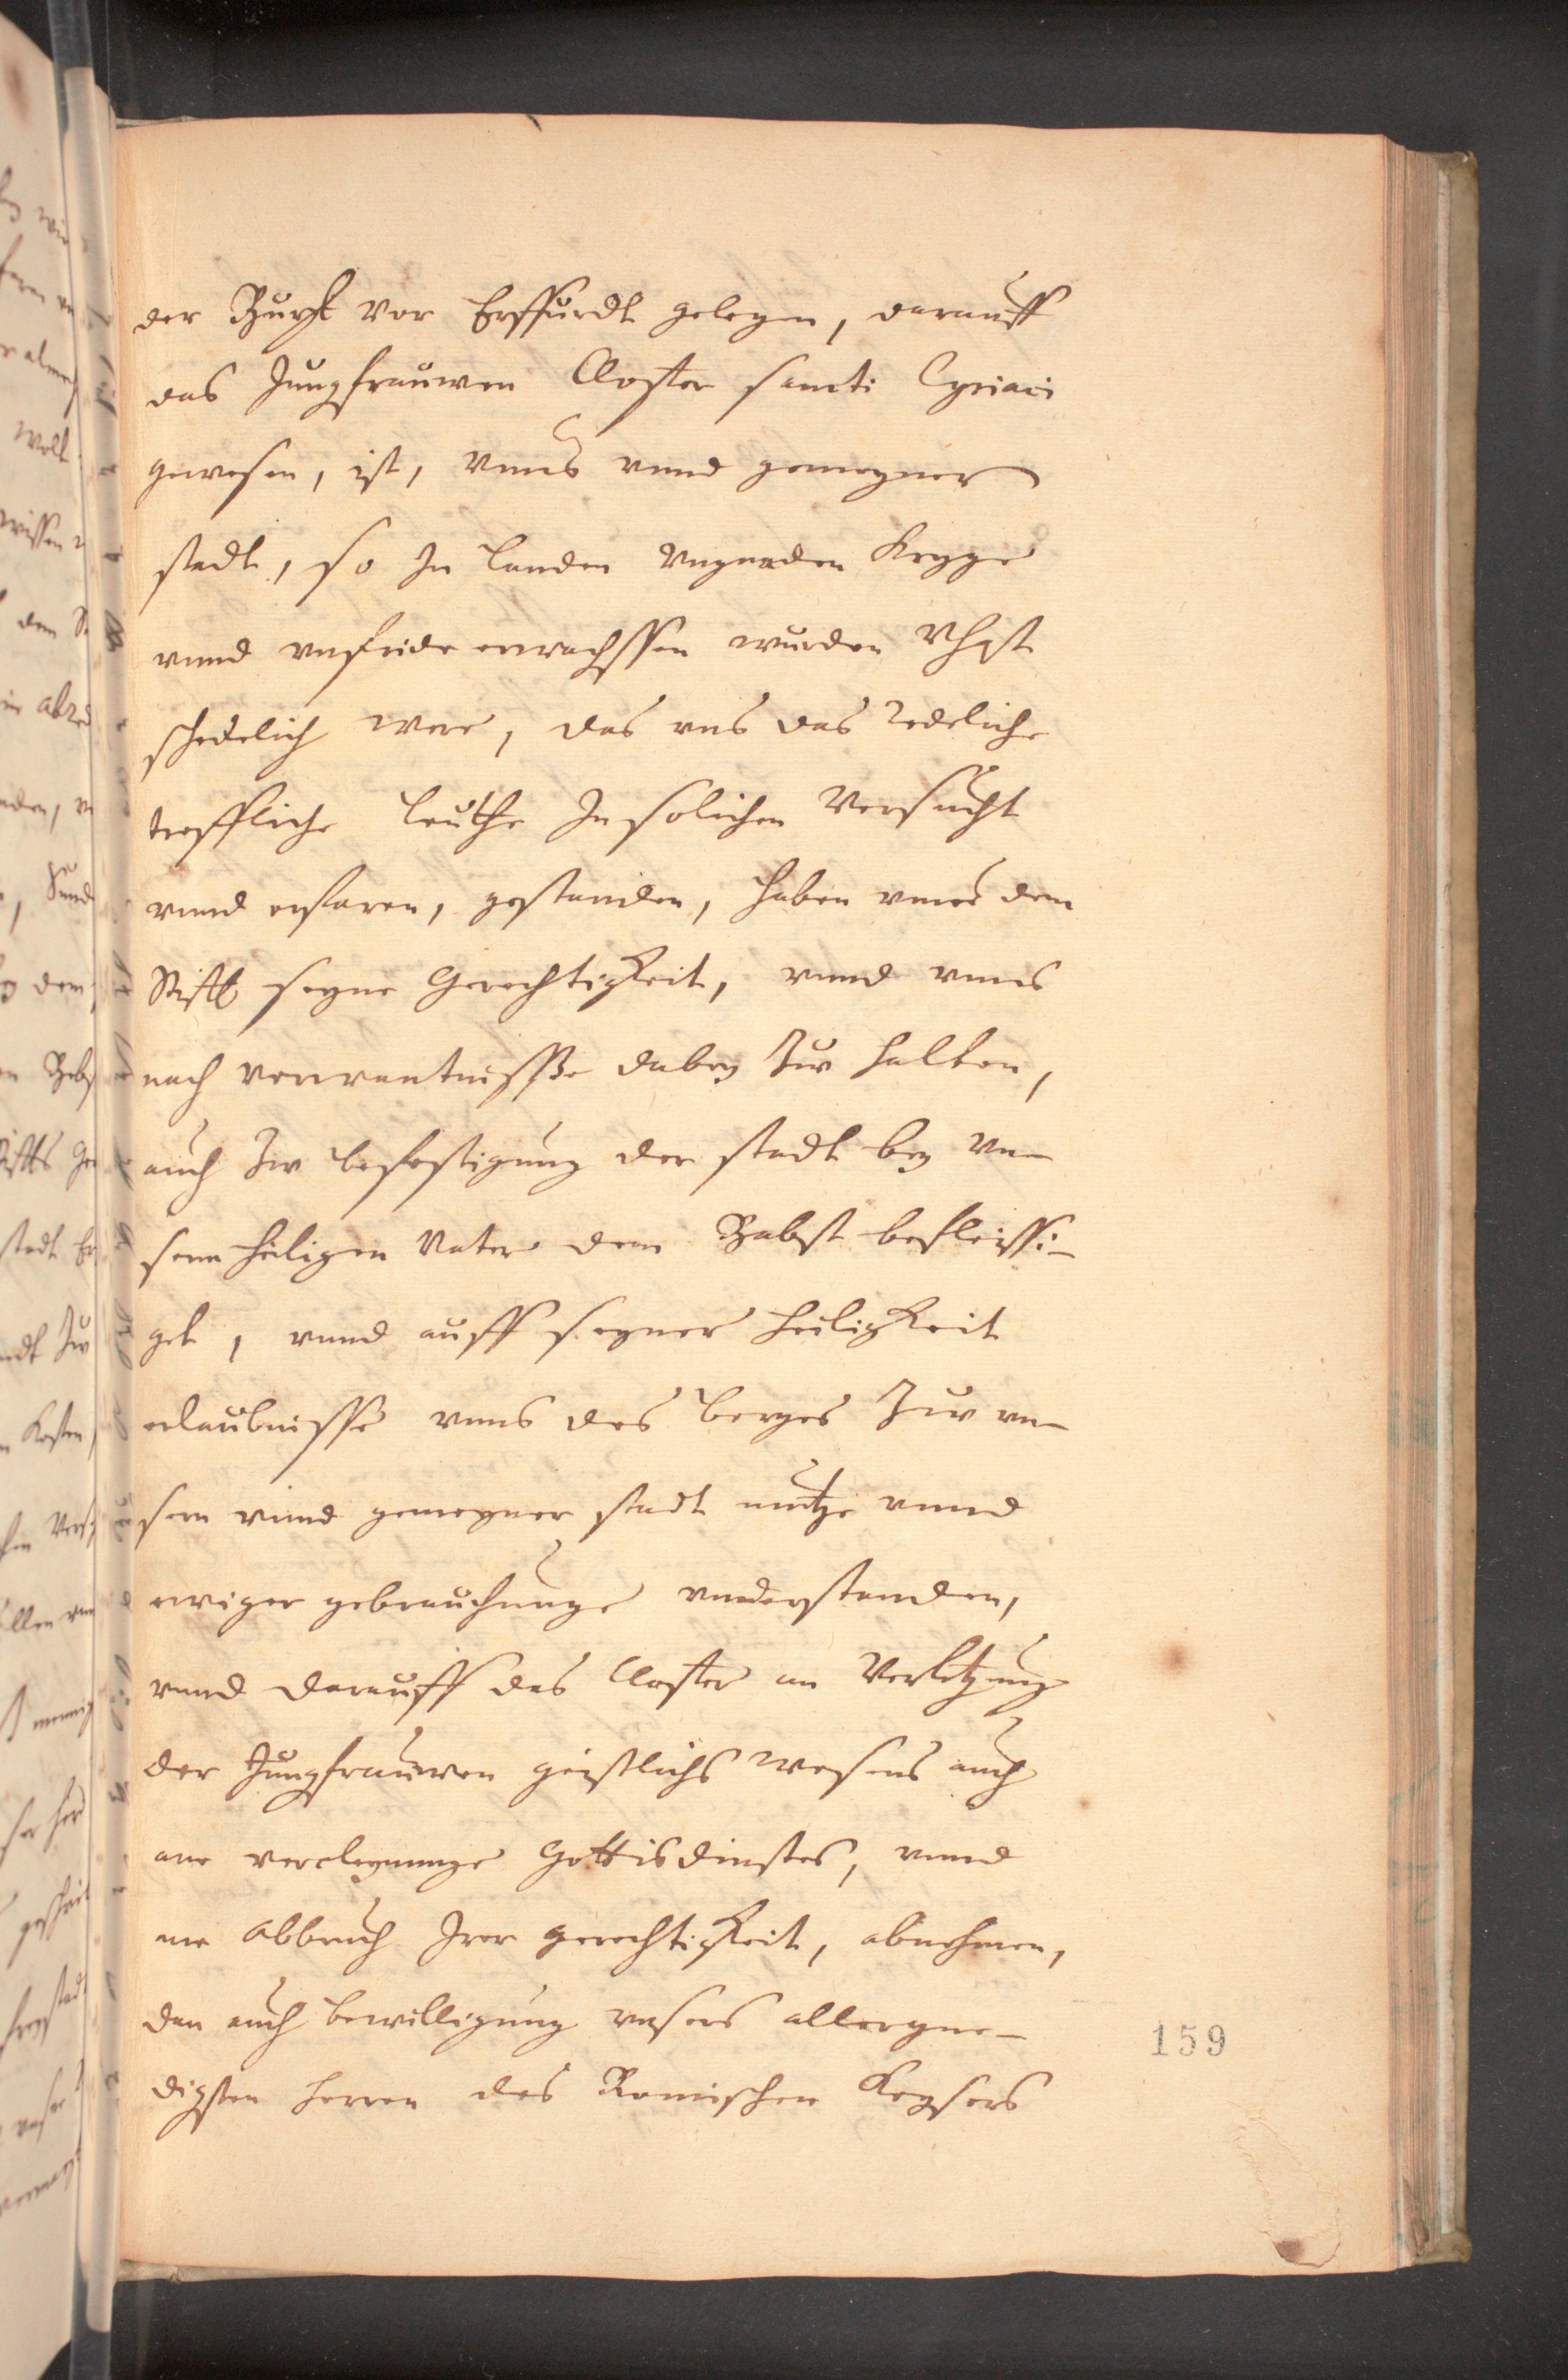 der Burgk vor Erffurdt gelegen, darauff
das Jungfrauwen Closter sancti Cyriaci
gewesen, ist, vnns vnnd gemeyner
stadt, so In landen vngnaden Kryge
vnnd vnfride erwachssen wurden
schedelich were, das vns das redeliche
treffliche leuthe In solichen versucht
vnnd erfaren, gestanden, haben vnns dem
Stifft seyne Gerechtigkeit, vnnd vnns
nach vorwantnissße dabey zuv halten,
auch zuv befestigung der stadt bey vn-
serm heiligen Vater dem Babst befleissi-
get, vnnd auff seyner heiligkeit
erlaubnisse vnns des berges zuv vn-
sern vnnd gemeyner stadt nutze vnnd
ewiger gebrauchunge vnnderstanden,
vnnd darauff das Closter an Verletzung
der Jungfrauwen geistlichs wesens auch
ane verclegnunge Gottisdinstes, vnnd
ane Abbruch Irer gerechtigkeit, abnehmen,
den auch bewilligung vnsers allergne-
digsten herren des Romischen Keysers
159